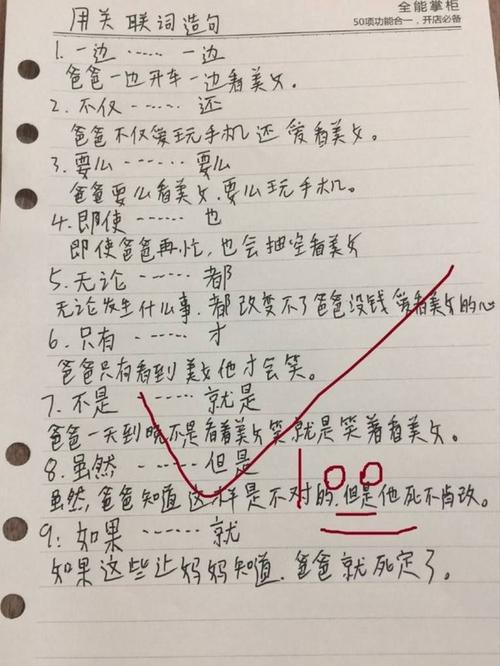 全能掌柜
50项功能合一，开店必备
用关联词造句
1. 一边 …… 一边
爸爸一边开车一边看美女。
2. 不仅 …… 还
爸爸不仅爱玩手机还爱看美女。
3. 要么 …… 要么
爸爸要么看美女，要么玩手机。
4. 即使 …… 也
即使爸爸再忙，也会抽空看美女
5. 无论 …… 都
无论发生什么事，都改变不了爸爸没钱爱看美女的心
6. 只有 …… 才
爸爸只有看到美女他才会笑。
7. 不是 …… 就是
爸爸一天到晚不是看着美女笑就是笑着看美女。
8. 虽然 …… 但是
虽然，爸爸知道这样是不对的，但是他死不肯改。
9: 如果 …… 就
如果这些让妈妈知道，爸爸就死定了。
100